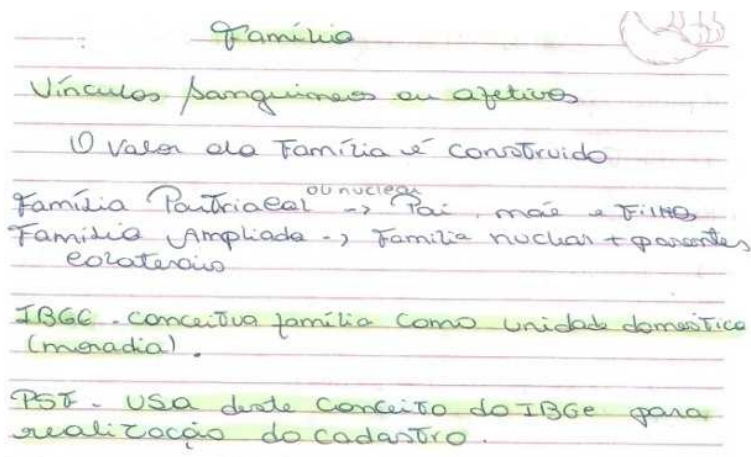 Família
Vínculos sanguineos ou afetivos
O Valor da Família é construido
ou nuclear
Família Pautriacal -> Pai, mãe e Filhos
Familia Ampliada -> Familia nuclear + parentes
colaterais
IBGE - conceitua família como unidade domestica
(moradia).
PSF - USA deste conceito do IBGE para
realização do cadastro.